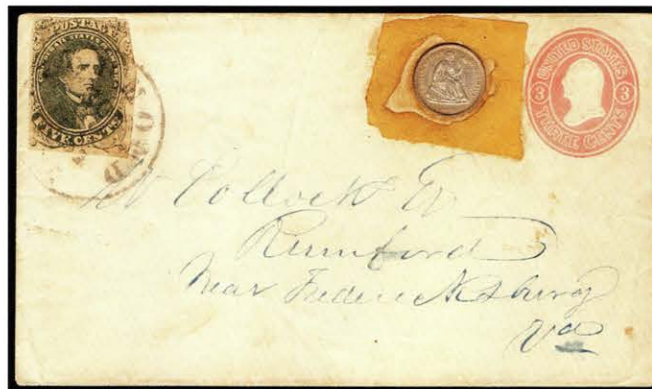 POSTAGE
CONFEDERATE STATES OF AMERICA
FIVE CENTS
UNITED STATES
3 3
THREE CENTS
Pollock
Rumford
Near Fredericksburg
Va